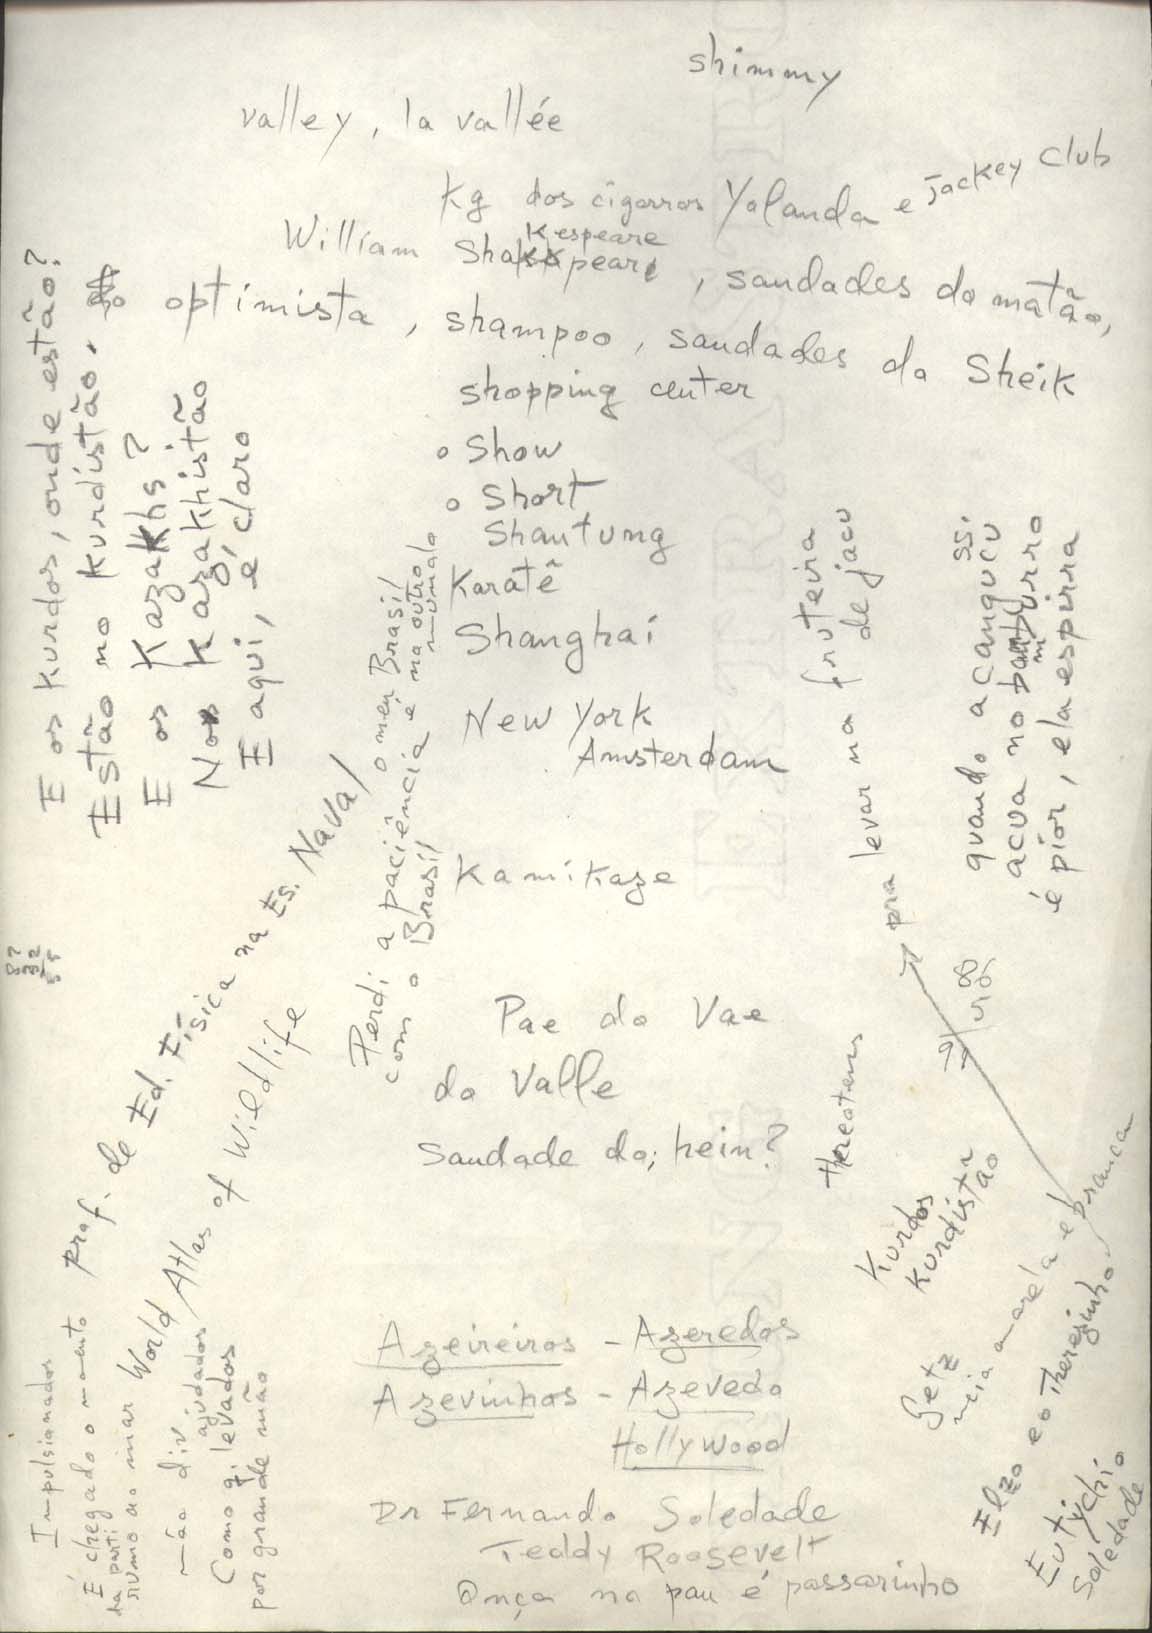 shimmy
valley, la vallée
Kg dos cigarros Yolanda e Jackey Club
kespeare
William Shakspeare, saudades do matão,
optimista, shampoo, saudades do Sheik
shopping center
o Show
o Short
Shantung
Karatê
Shanghai
New York
Amsterdam
Kamikaze
Pae do Vae
do Valle
Saudade do; hein?
Azeireiros - Azeredos
Azevinhos - Azevedo
Hollywood
Dr Fernando Soledade
Teddy Roosevelt
Onça no pau é passarinho
E os kurdos, onde estão?
Estão no kurdistão.
E os Kazakhs?
No kazakhistão
E aqui, é claro
Perdi a paciência
com o Brasil
o meu Brasil
é no outro
mundo
prof. de Ed. Física na Es. Naval
World Atlas of Wildlife
Impulsionados
É chegado o momento
da parti
rumo ao mar
mão div
ajudados
Como q. levados
por grande mão
pra levar na fruteira
de jacu
quando a canguçu
acua no burro
é pior, ela espirra
Kurdos
Kurdistão
Setz
meia amarela e branca
Elzo e o Therezinho
Eutychio
Soledade